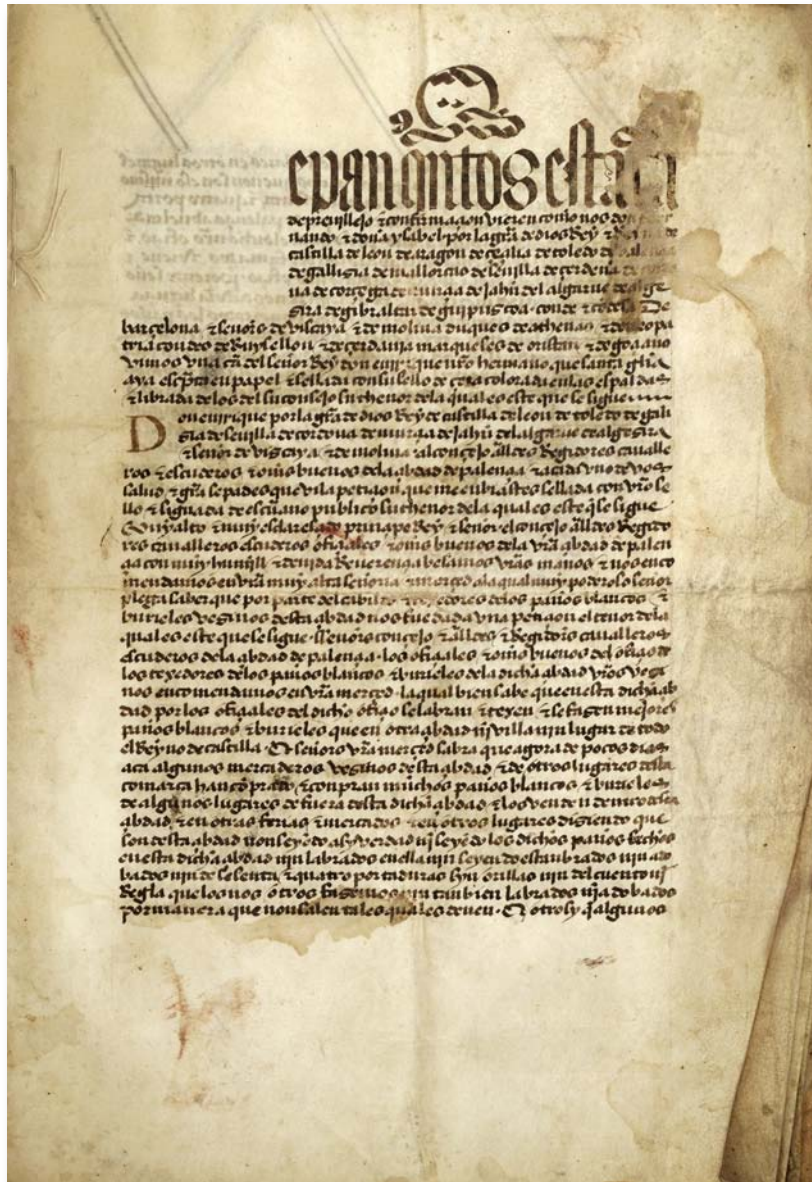 Sepan quantos esta carta
de preuillejo & confirmaçion vieren como nos don
nando & doña ysabel por la gra de dios Rey & Reyna de
castilla de leon de aragon de çeçilia de toledo de valençia
de gallisia de mallorcas de seuilla de çerdeña de
ua de corçega de murçia de jahen del algarue de alge
sira de gibraltar de guipuscoa conde & condesa De
barçelona & señores de viscaya & de molina duques de athenas & de neo pa
tria condes de Ruysellon & de çerdania marqueses de oristan & de goçiano
vimos vna carta del señor Rey don enrrique nro hermano que santa gloria
aya escripta en papel & sellada con su sello de çera colorada en las espaldas
& librada de los del su consejo su thenor de la qual es este que se sigue
Don enrique por la gra de dios Rey de castilla de leon de toledo de galli
sia de seuilla de cordoua de murçia de jahen del algarue de algesira
& señor de viscaya & de molina al conçejo alldes Regidores caualle
ros & escuderos & omes buenos de la çibdad de palençia & a cada vno de vos
salud & gra sepades que vi la petiçion que me enbiastes sellada con vro se
llo & signada de escriuano publico su thenor de la qual es este que se sigue
Muy alto & muy esclaresçido prinçipe Rey & señor el conçejo alldes Regido
res caualleros escuderos ofiçiales & omes buenos de la vra çibdad de palen
çia con muy humill & deuida Reuerençia besamos vras manos & nos enco
mendamos en vra muy alta señoria & merçed a la qual muy poderoso señor
plega saber que por parte del cabildo & texedores de los paños blancos &
burieles veçinos desta çibdad nos fue dada vna petiçion el tenor de la
qual es este que se sigue Señores conçejo & alldes & Regidores caualleros
escuderos de la çibdad de palençia los ofiçiales & omes buenos del ofiçio de
los texedores de los paños blancos & burieles de la dicha çibdad vros veçi
nos encomendamos en vra merçed la qual bien sabe que en esta dicha çib
dad por los ofiçiales del dicho ofiçio se labran & texen & se fasen mejores
paños blancos & burieles que en otra çibdad nin villa nin lugar de todo
el Reyno de castilla Et señores vra merçed sabra que agora de pocos dias
aca algunos mercaderos veçinos desta çibdad & de otros lugares desta
comarca han conprado & conpran muchos paños blancos & burieles
de algunos lugares de fuera desta dicha çibdad & los venden dentro desta
çibdad & en otras ferias & mercados & en otros lugares disiendo que
son desta çibdad non seyendo asy verdad nin seyendo los dichos paños fechos
en esta dicha çibdad nin labrados en ella nin seyendo estanbrados nin ado
bados nin de sesenta & quatro portaduras syn orillas nin del cuento nin
Regla que los nos otros fasemos nin tan bien labrados nin adobados
por manera que non salen tales quales deuen Et otrosy que algunos